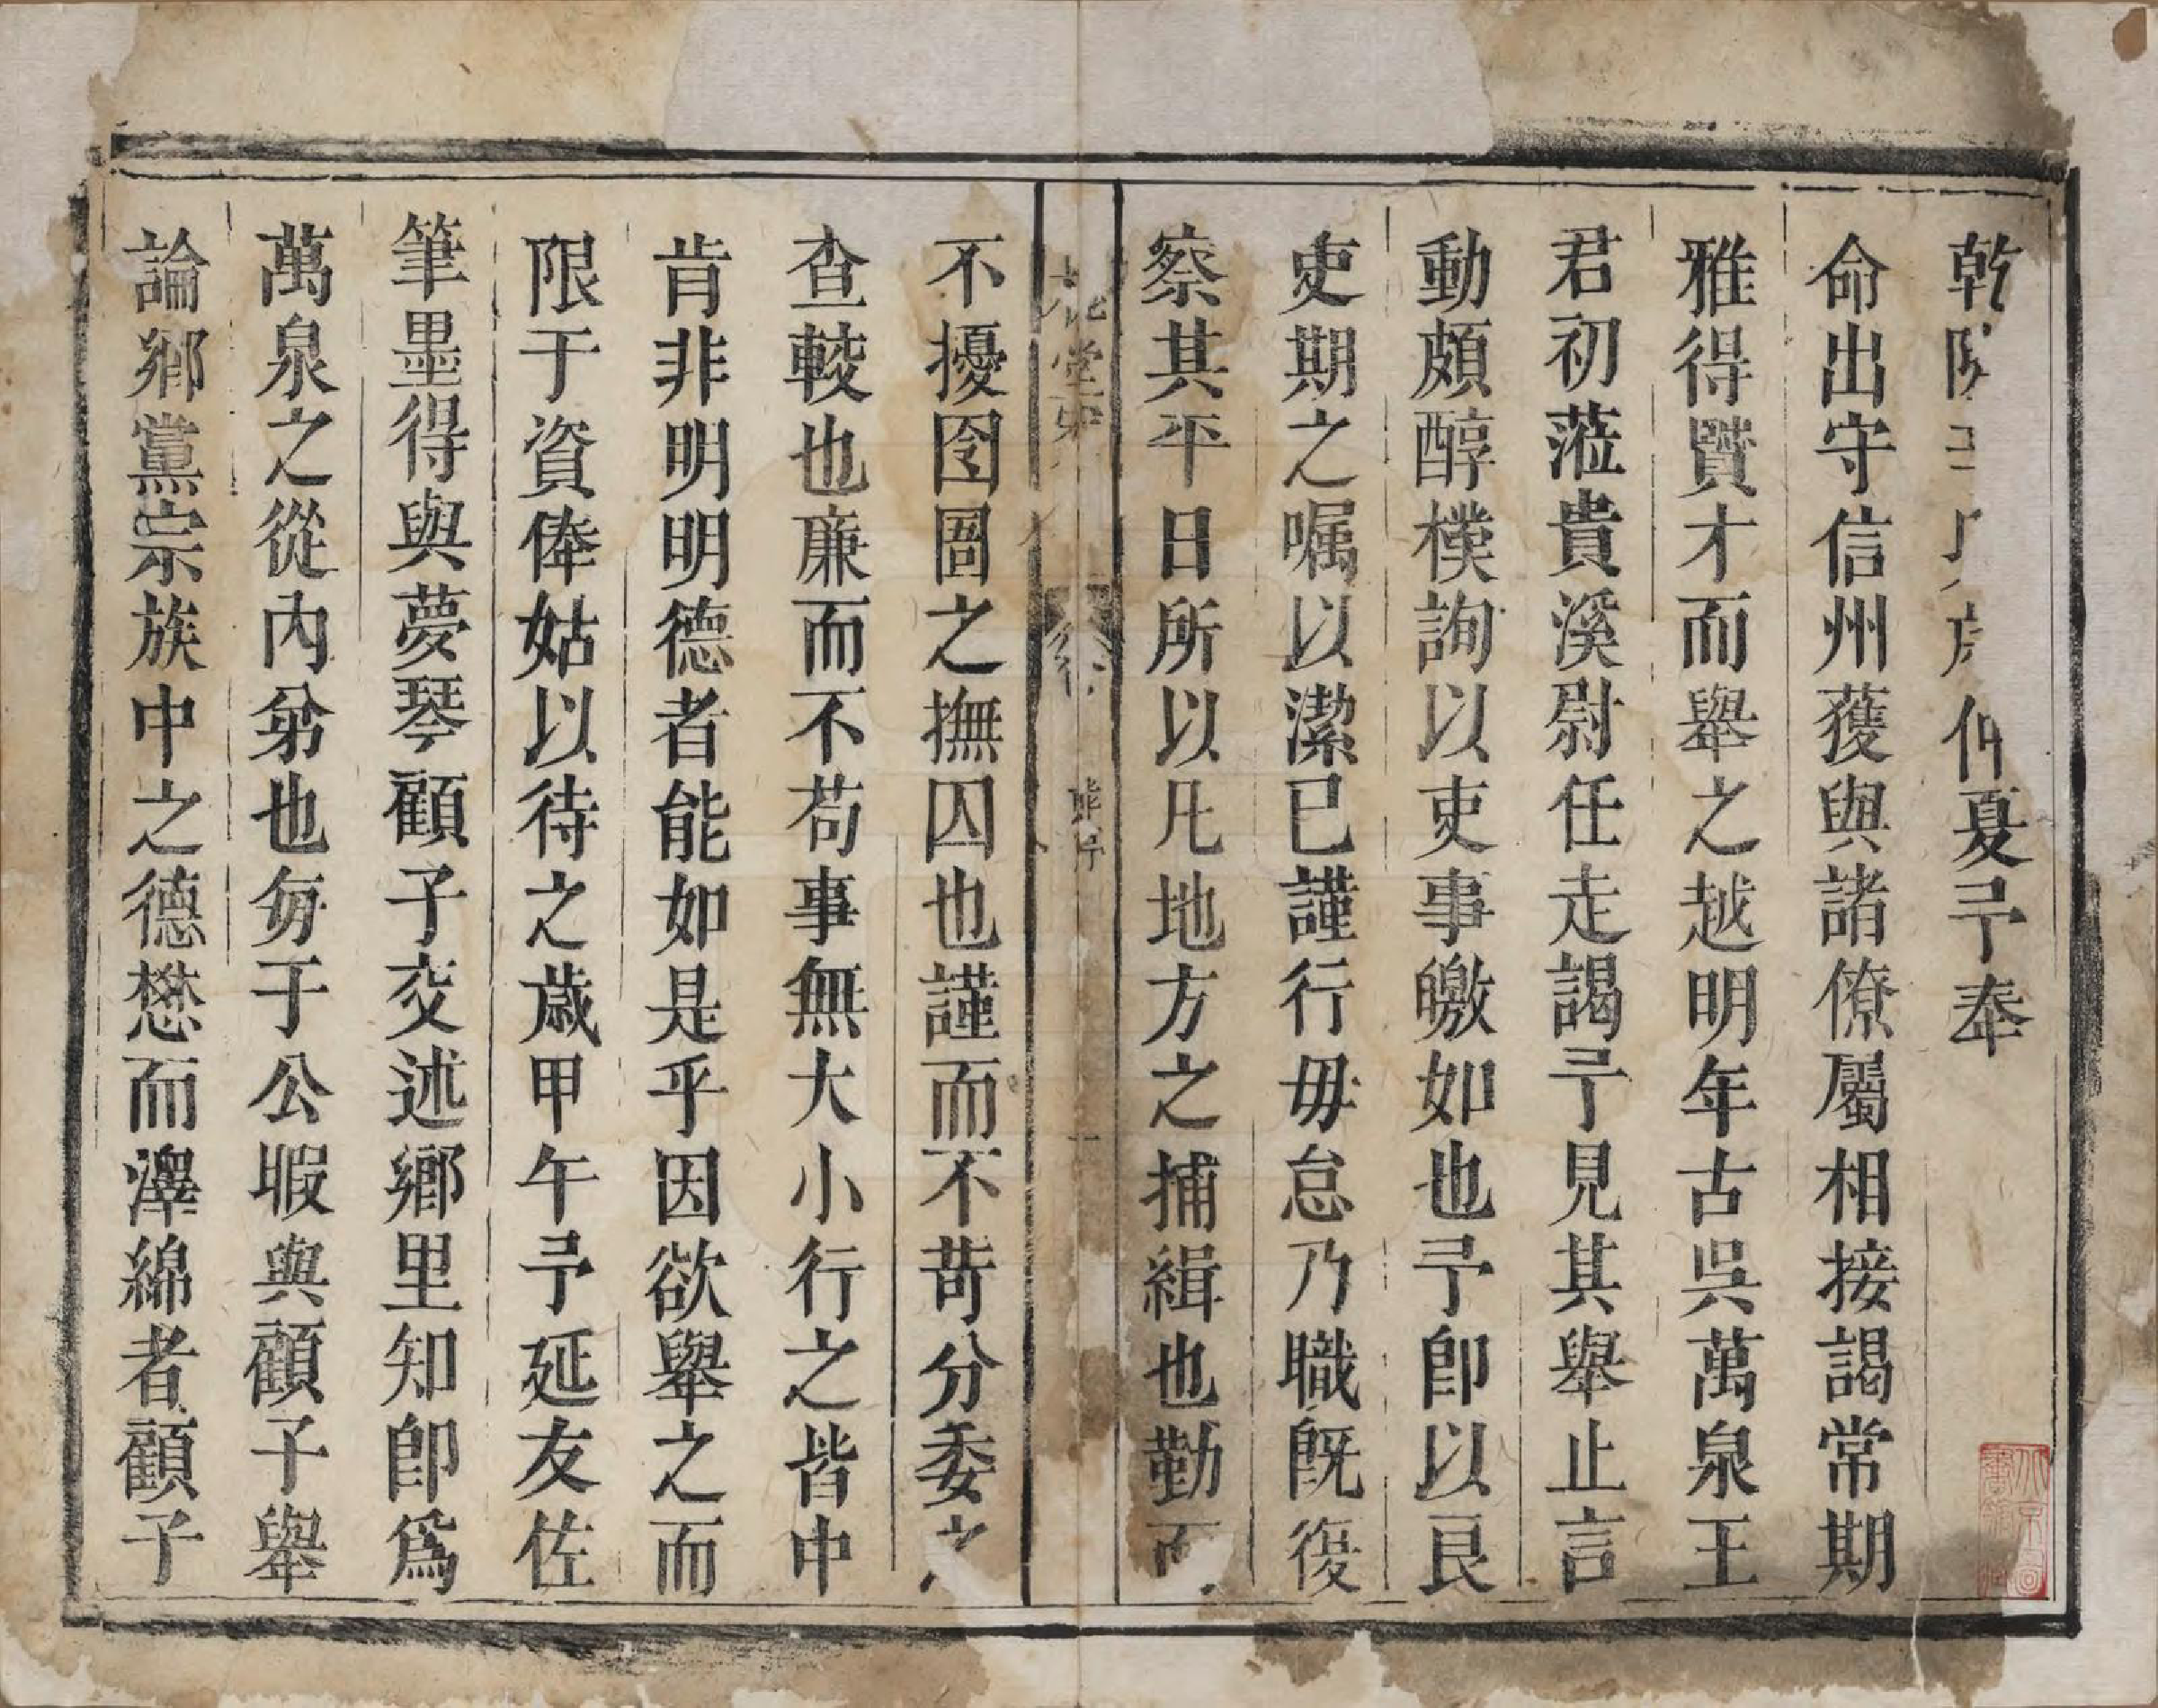 乾隆仲夏予奉
命出守信州獲與諸僚屬相接謁常期
雅得賢才而舉之越明年古吳萬泉王
君初蒞貴溪尉任走謁予見其舉止言
動頗醇樸詢以吏事皦如也予即以良
吏期之嘱以潔已謹行毋怠乃職旣復
察其平日所以凡地方之捕緝也勤而
不擾囹圄之撫囚也謹而不苛分委之
查較也廉而不苟事無大小行之皆中
肯非明明德者能如是乎因欲舉之而
限于資俸姑以待之歲甲午予延友佐
筆墨得與夢琴顧子交述鄉里知卽爲
萬泉之從內弟也每于公暇與顧子舉
論鄉黨宗族中之德懋而澤綿者顧子